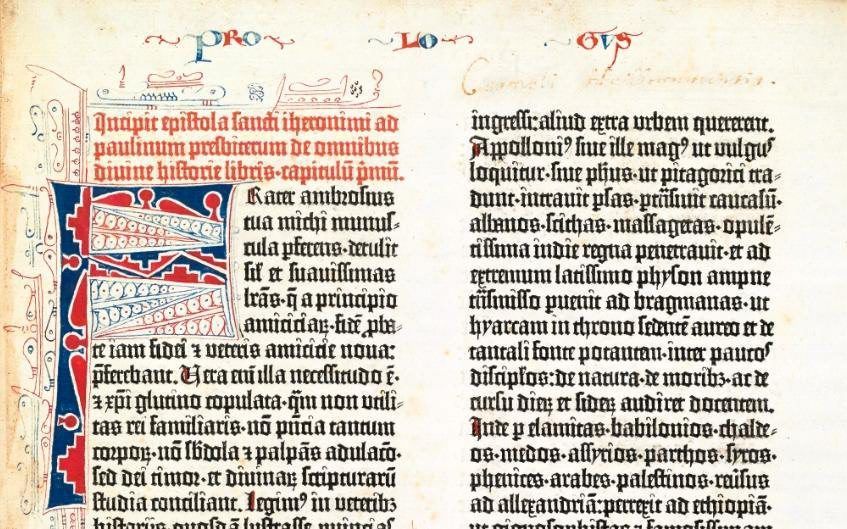 PRO LO GUS
Incipit epistola sancti iheronimi ad
paulinum presbiterum de omnibus
divine historie libris·capitulū p̄mū.
Frater ambrosius
tua michi munus-
cula pferens·detulit
sil̄ et suavissimas
lr̄as·q̄ a principio
amiciciaꝝ·fidē pba-
te iam fidei ⁊ veteris amicicie nova:
p̄ferebant. Vera eni illa necessitudo ē·
⁊ xp̄i glutino copulata·qm̄ non utili-
tas rei familiaris·nō p̄ncia tantum
corpoꝝ·nō sb̄dola ⁊ palpās adulacō·
sed dei timor·et divinaꝝ scripturarū
studia conciliant. Legimꝰ in veteribꝫ
historijs quosdā lustrasse
ingressi:aliud extra urbem quererent.
Appolloniꝰ sive ille magꝰ ut vulgꝰ
loquitur·sive ph̄us·ut pitagorici tra-
dunt·intravit p̄sas·ptrāsivit caucasū·
albanos·scithas·massagetas·opulē-
tissima indie regna penetravit·et ad
extremum latissimo physon ampne
trāsmisso pvenit ad bragmanas·ut
hyarcam in throno sedentē aureo et de
tantali fonte potantem·inter paucoˢ
discipl̄os:de natura·de moribꝫ·ac de
cursu dieꝝ et sideꝝ audiret docentem.
Inde p elamitas·babilonios·chalde-
os·medos·assyrios·parthos·syros·
phenices·arabes·palestinos·reversus
ad allexandriā:perrexit ad ethiopiā·
ut gignosophistas ⁊